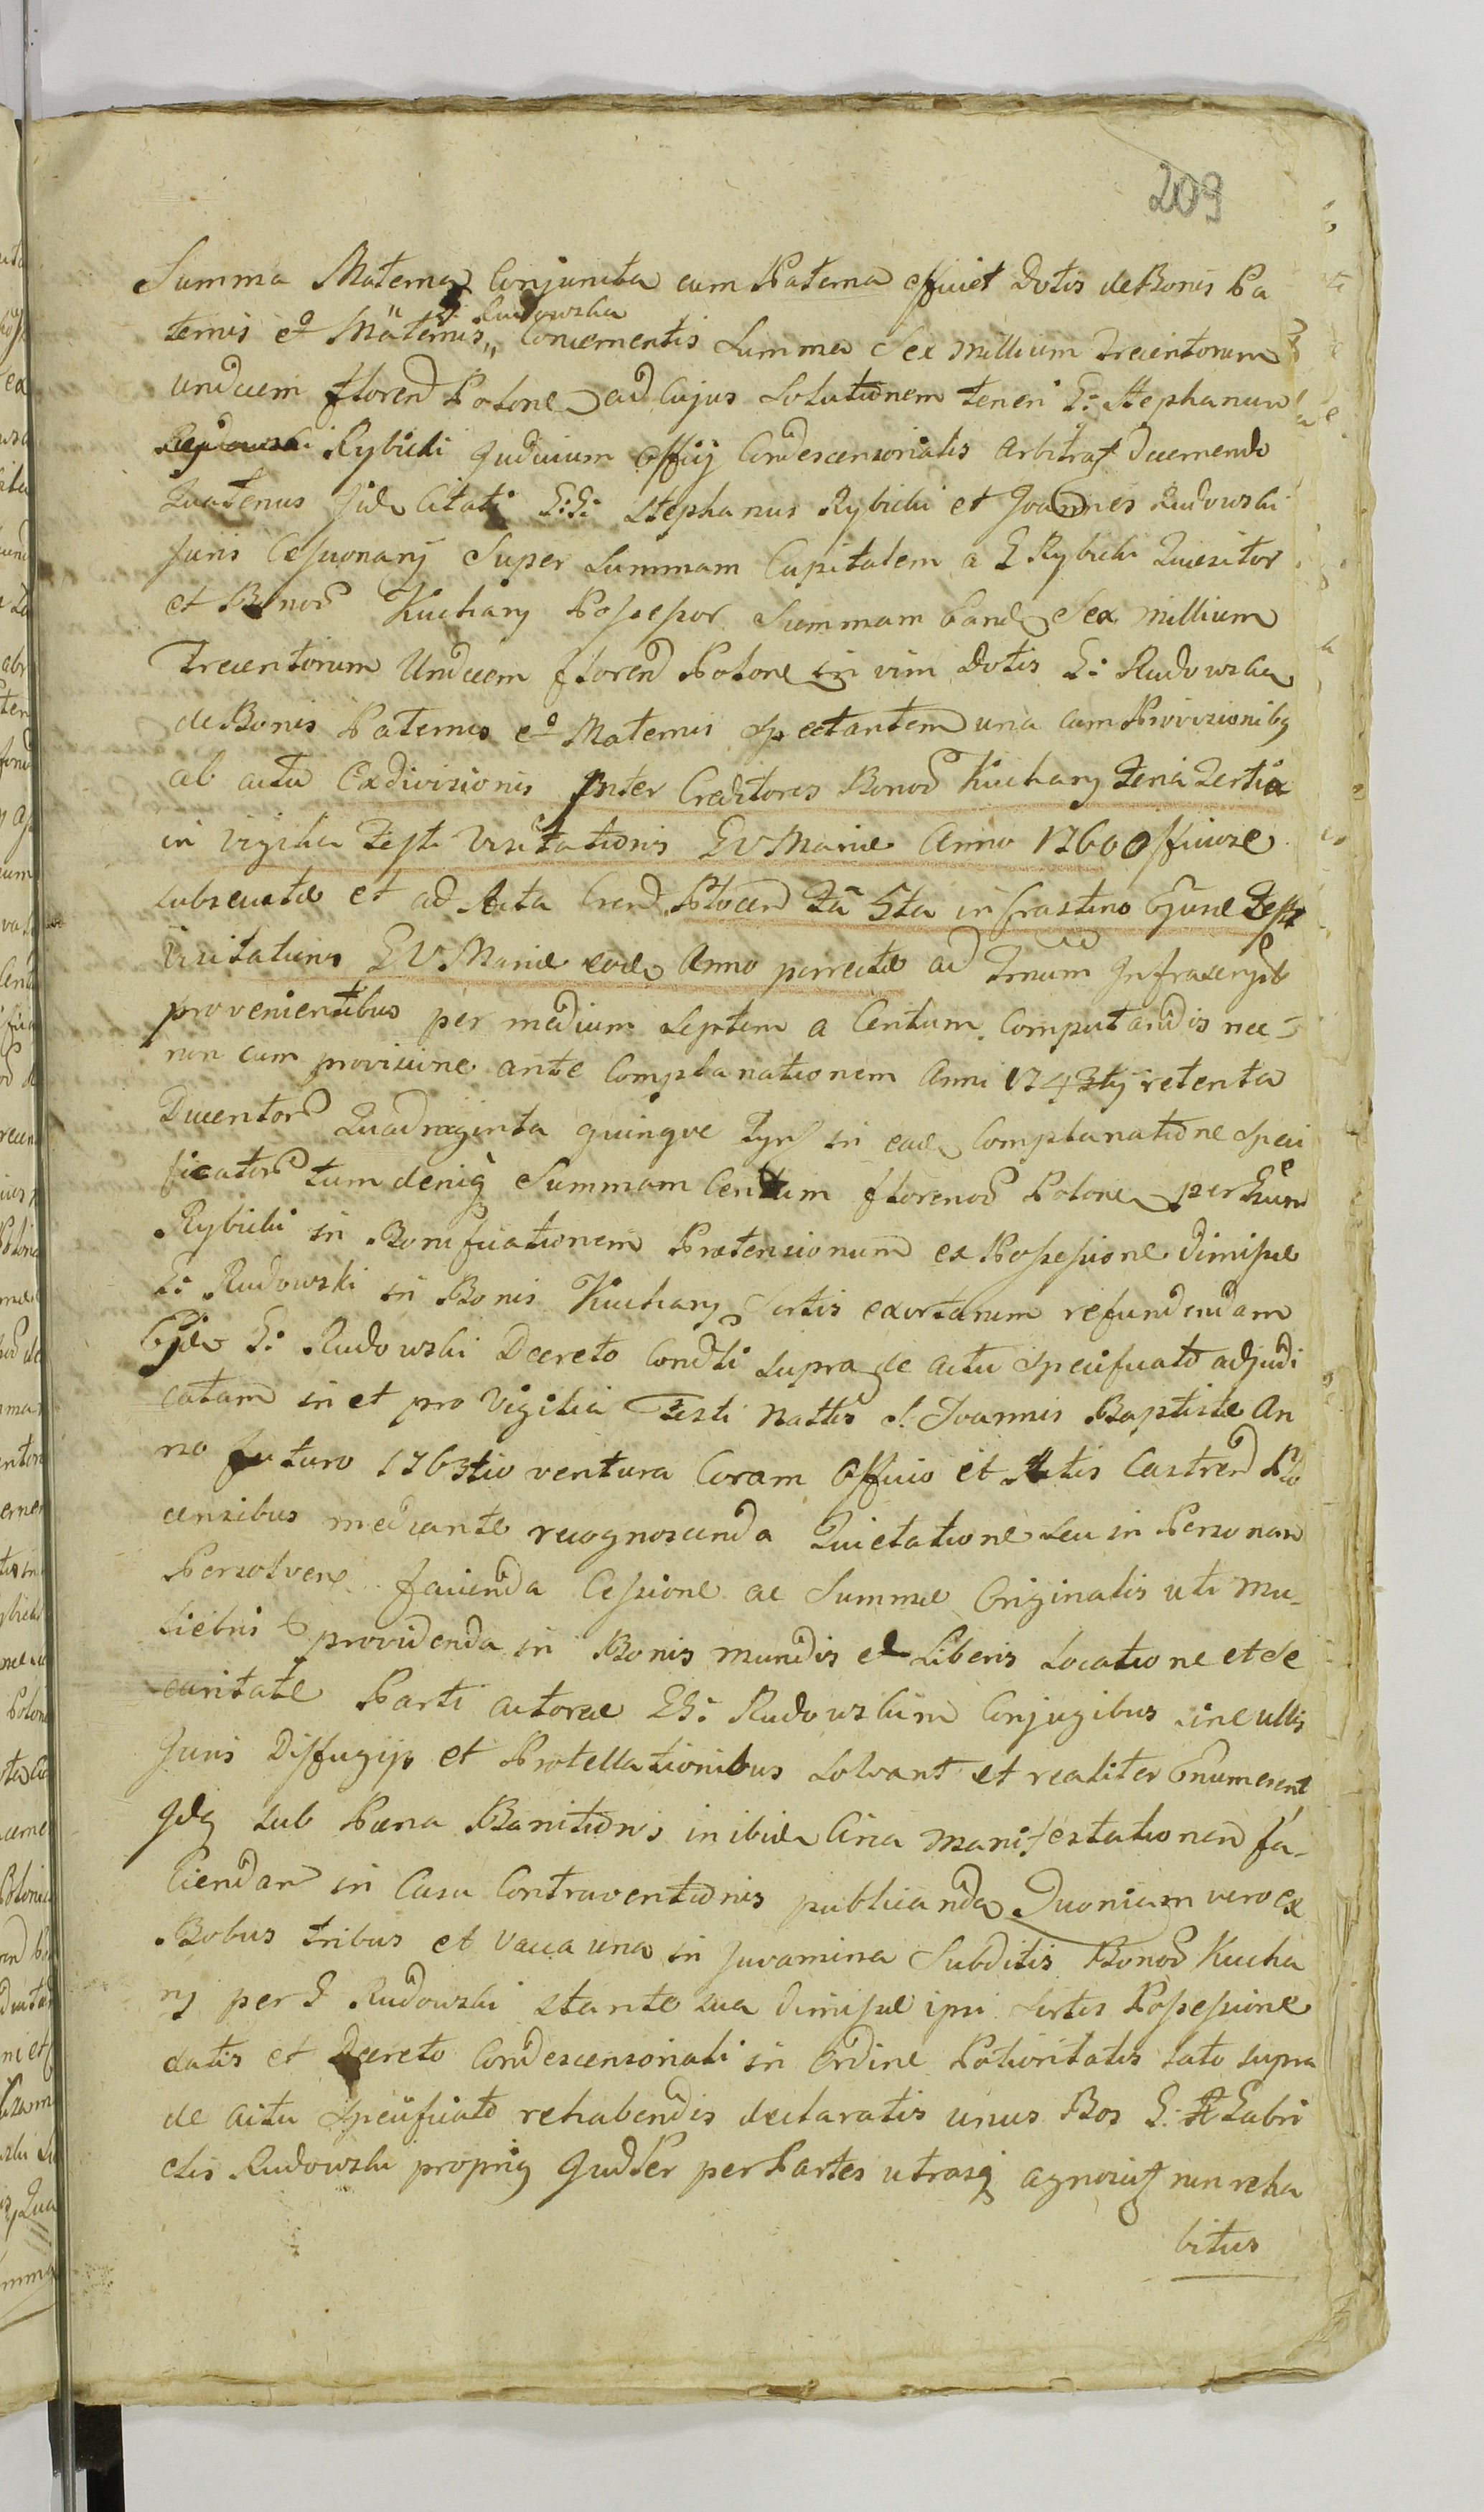 209
Summa Materna Conjuncta cum Paterna efficiet Dotis de Bonis Pa
Rudowska
ternis et Maternis Concernentis Summa Sex millium Trecentorum
undecem floren Polone ad Cujus Solutionem teneri G: Stephanum
Rybicki Judicium Officij Condescensorialis arbitrat Decernendo
Quatenus Citati G:G: Stephanus Rybicki et Joannes Rudowski
Juris Cessionarij Super Summam Capitalem a G Rybicki Quesitor
et Bonor Kuchary Possessor Summam Sex millium
Trecentorum Undecem floren Polone in vim Dotis G: Rudowska
de Bonis Paternis et Maternis Spectantem una cum Provisionibq
ab actu Exdivisionis Inter Creditores Bonor Kuchary Feria Tertia
in vigilia Fest Visitationis BVMarie Anno 1760 Officiose
subsecute et ad Acta Plocen Fa 5ta in Crastino Fest
Visitationis BVMarie eode Anno porrecte ad
provenientibus per medium Septem a Centum Computandis nec-
non cum provisione ante Complanationem Anni 1743tij retenta
Ducentor Quadraginta quinque Tyn in eade Complanatione Speci
ficator tum deniq Summam Centum florenor Polone per
Rybicki in Bonificationem Pretensionum ex Possessione dimisse
G: Rudowski in Bonis Kuchary Sortis exortarum refundendam
G: Rudowski Decreto Condli supra de actu Specificato adjudi
catam in et pro Vigilia Festi Nattis S. Joannis Baptiste An
no futuro 1763tio ventura Coram Officio et Actis Castren Plo
censibus mediante recognoscenda Quietatione seu in Personam
Persolvere facienda Cessione ac Summe Originalis uti Mu-
liebris providenda in Bonis mundis et Liberis Locatione et Se
curitate Parti actoree GG: Rudowskim Conjugibus sine ullis
Juris Diffugijs et Protellationibus Solvant et realiter Enumerent
Idq sub Pena Banitionis inibide Circa Manifestationem fa-
ciendam in Casu Contraventionis publicanda Quoniam vero ex
Bobus tribus et Vacca una in Juvamina Subditis Bonor Kucha
ry per G Rudowski stante sua dimisse ipsi Sortis Possessione
datis et Decreto Condescensoriali in Ordine Potioritatis lato supra
de actu Specificato rehabendis declaratis unus Bos G: Gabri
elis Rudowski propriq per Partes utrasq agnoscit non reha
bitus